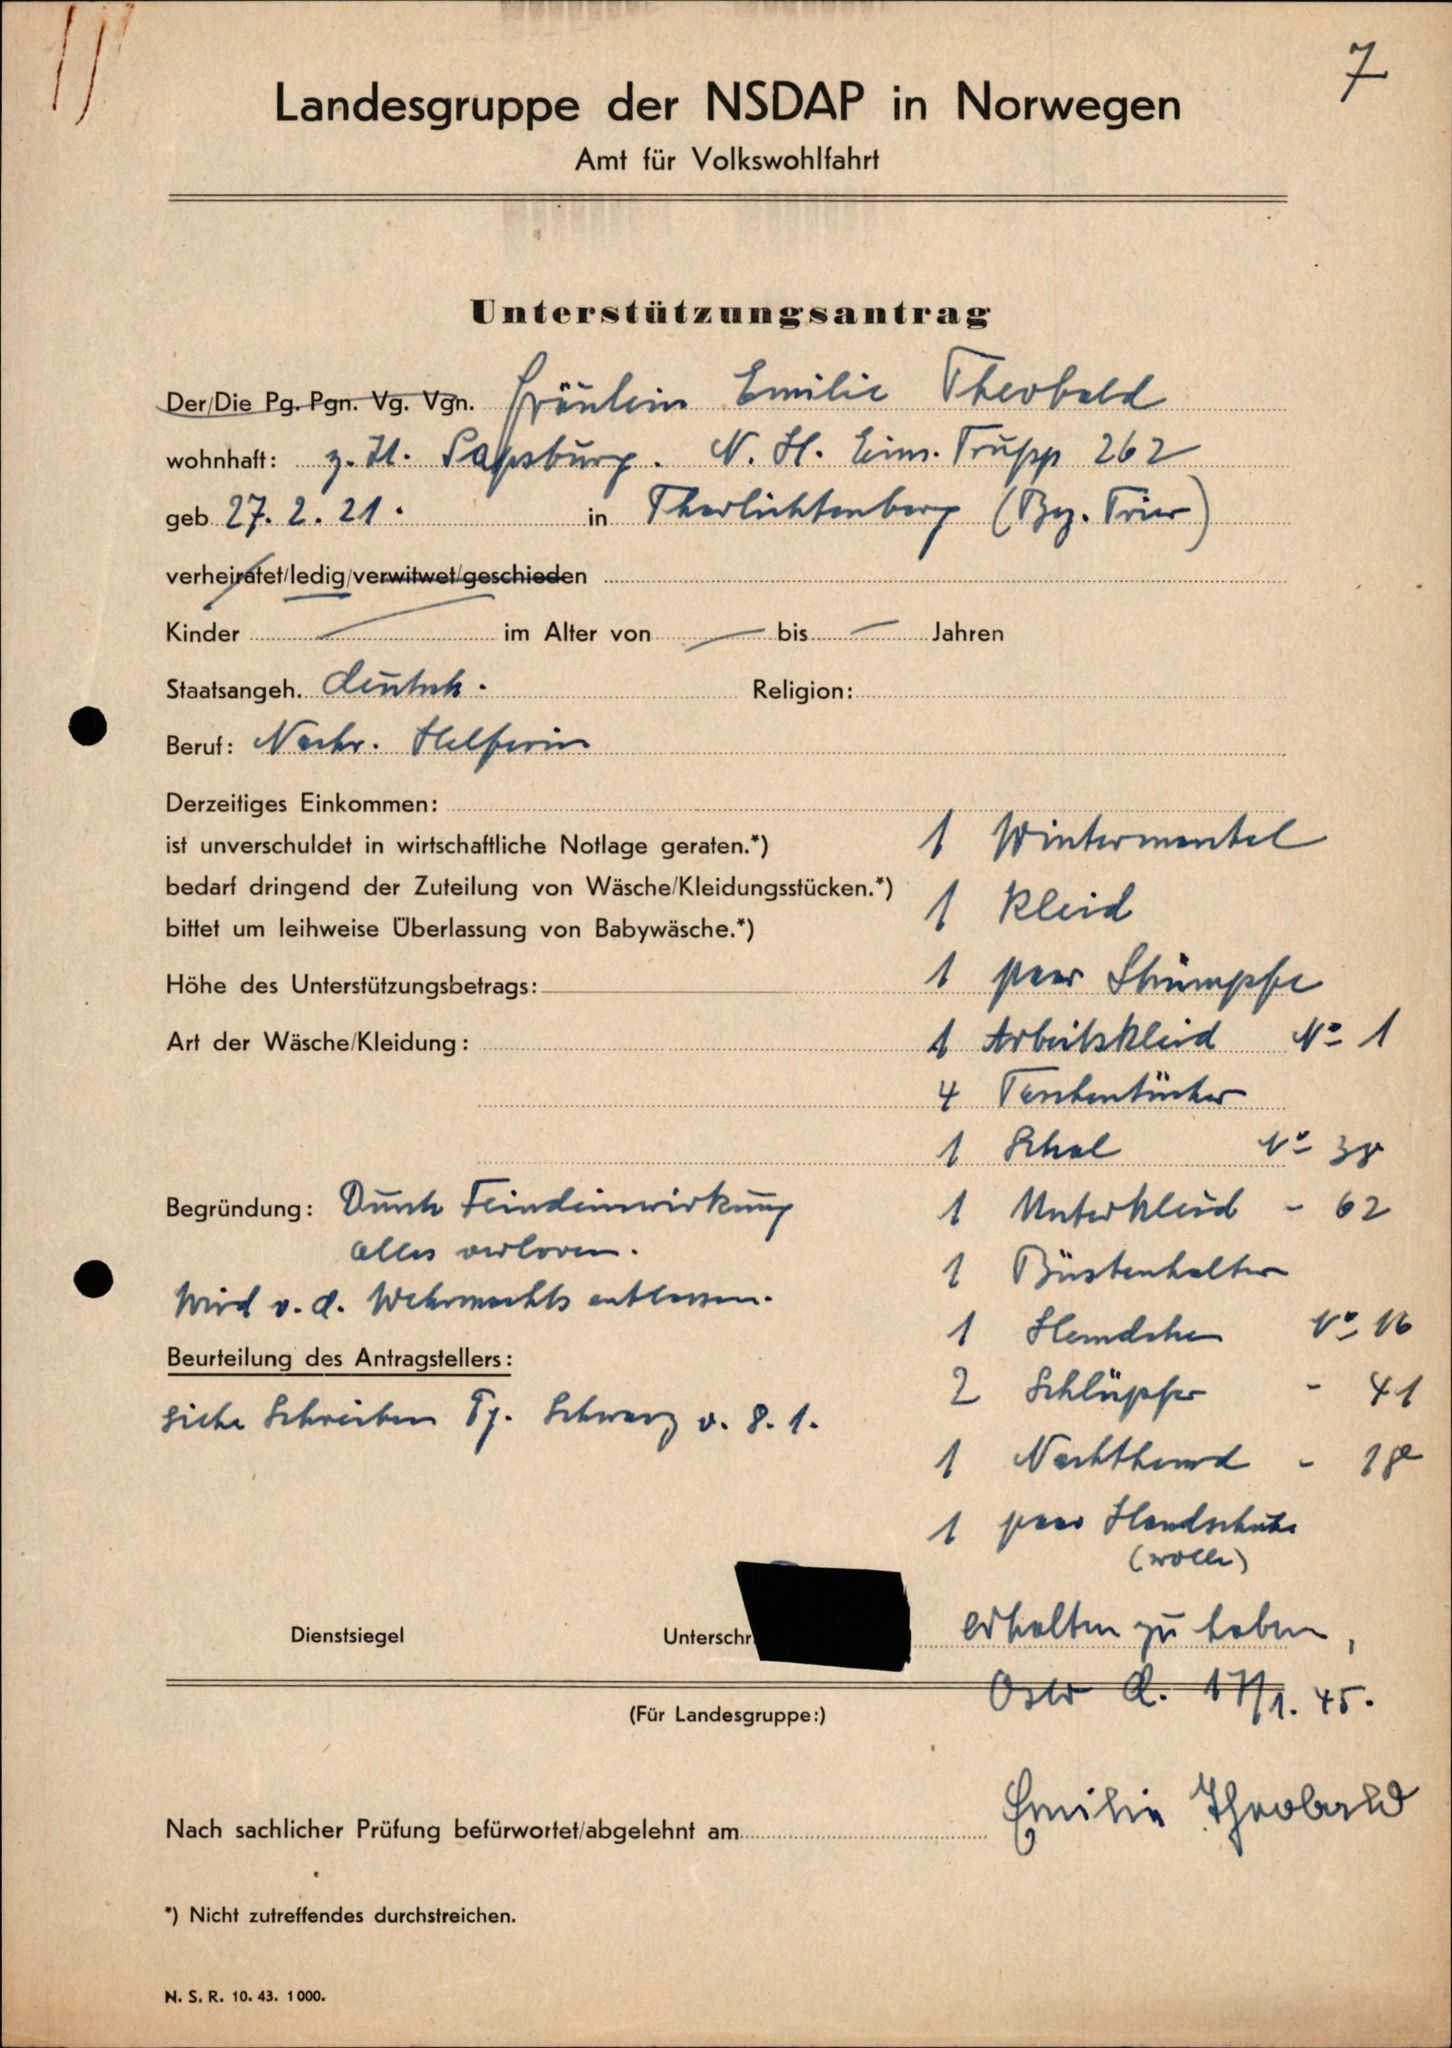 7
Landesgruppe der NSDAP in Norwegen
Amt für Volkswohlfahrt
Unterstützungsantrag
Der/Die Pg. Pgn. Vg. Vgn. Fräulein Emilie Theobald
wohnhaft: z. Zt. N. H. Eins. Trupp 262
geb 27. 2. 21. in Thallichtenberg (Bez. Trier)
verheiratet/ledig/verwitwet/geschieden
Kinder — im Alter von — bis — Jahren
Staatsangeh. deutsch. Religion:
Beruf: Nachr. Helferin
Derzeitiges Einkommen:
ist unverschuldet in wirtschaftliche Notlage geraten.*) 1 Wintermantel
bedarf dringend der Zuteilung von Wäsche/Kleidungsstücken.*) 1 Kleid
bittet um leihweise Überlassung von Babywäsche.*)
Höhe des Unterstützungsbetrags: 1 paar Strümpfe
Art der Wäsche/Kleidung: 1 Arbeitskleid No 1
4 Taschentücher
1 Schal No 38
Begründung: Durch Feindeinwirkung 1 Unterkleid - 62
alles verloren. 1 Büstenhalter
Wird v. d. Wehrmachts entlassen. 1 Hemdchen No 16
Beurteilung des Antragstellers: 2 Schlüpfer - 41
siehe Schreiben Pg. Schwarz v. 8. 1.
1 Nachthemd - 18
1 paar Handschuhe
(wolle)
Dienstsiegel Unterschr erhalten zu haben,
Oslo d. 17/1. 45.
(Für Landesgruppe:)
Emilie Theobald
Nach sachlicher Prüfung befürwortet/abgelehnt am
*) Nicht zutreffendes durchstreichen.
N. S. R. 10. 43. 1000.